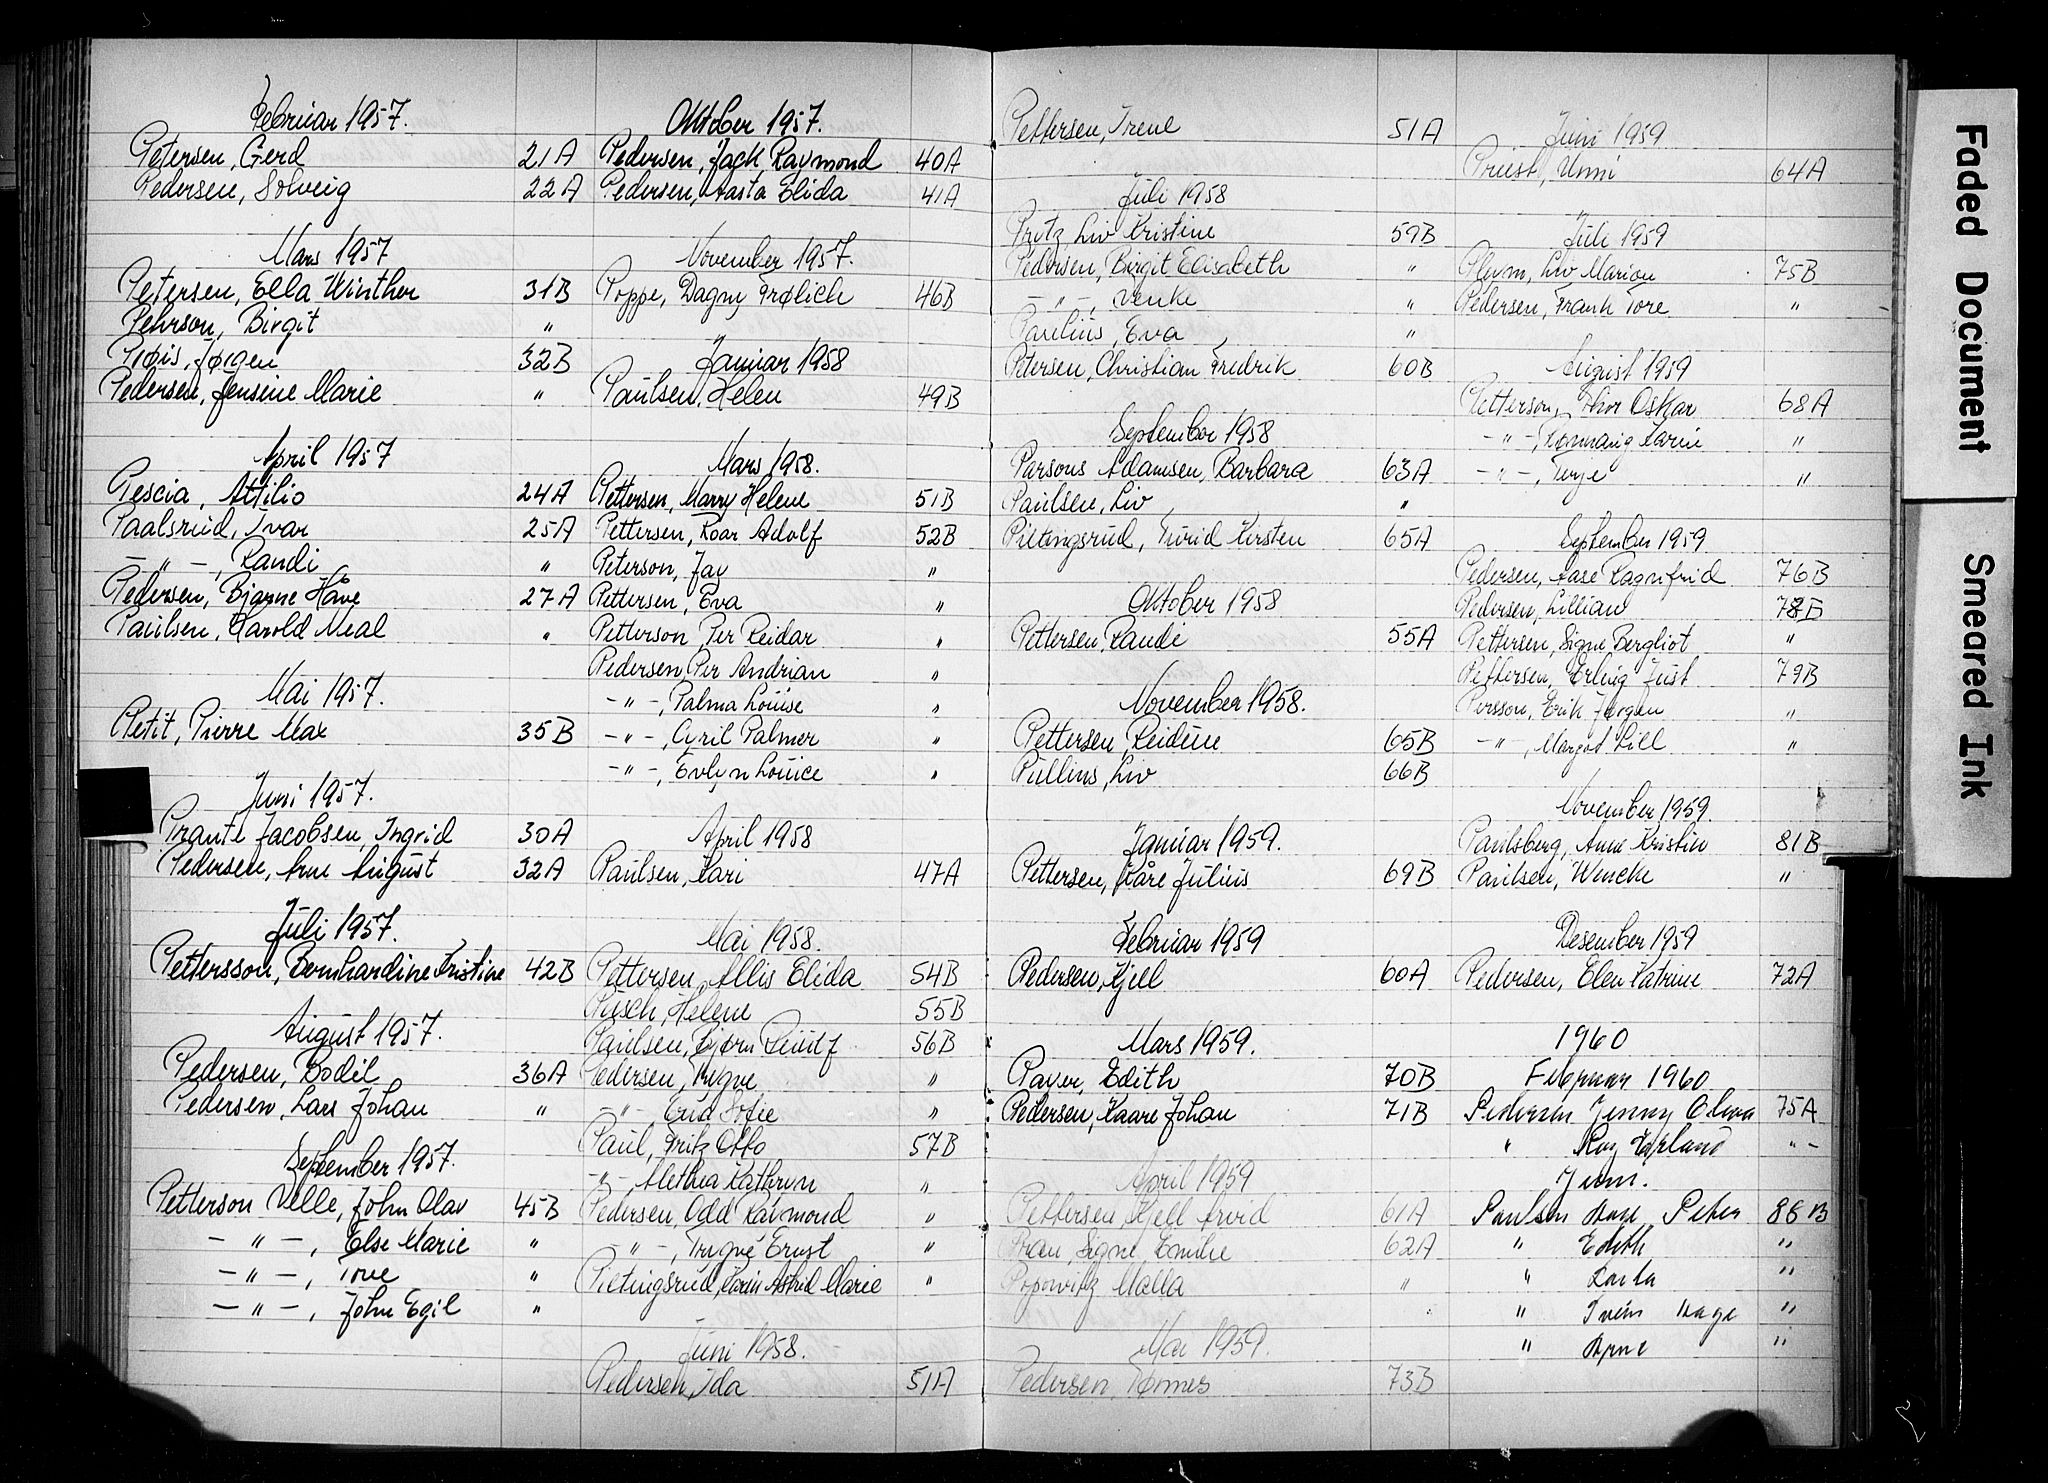 Februar 1957.
Petersen, Gerd 21A
Pedersen, Solveig 22A
Mars 1957
Petersen, Ella Winther 31B
Pehrson, Birgit "
Prøis, Jørgen 32B
Pedersen, Jensine Marie "
April 1957
Pescia, Attilio 24A
Paalsrud, Ivar 25A
- " -, Randi "
Pedersen, Bjarne Håve 27A
Paulsen, Harold Neal "
Mai 1957.
Petit, Pierre Max 35B
Juni 1957.
Prante Jacobsen, Ingrid 30A
Pedersen, Arne August 32A
Juli 1957.
Pettersson, Bernhardine Kristine 42B
August 1957.
Pedersen, Bodil 36A
Pedersen, Lars Johan "
September 1957.
Petterson Velle, John Olav 45B
- " -, Else Marie "
- " -, Tove "
- " -, John Egil "
Oktober 1957.
Pedersen, Jack Raymond 40A
Pedersen, Aasta Elida 41A
November 1957.
Poppe, Dagny Frølich 46B
Januar 1958
Paulsen, Helen 49B
Mars 1958.
Pettersen, Marry Helene 51B
Pettersen, Roar Adolf 52B
Peterson, Jay "
Pettersen, Eva "
Petterson, Per Reidar "
Pedersen, Per Andrian "
- " -, Palma Louise "
- " -, Cyril Palmer "
- " -, Evlyn Louice "
April 1958
Paulsen, Kari 47A
Mai 1958.
Pettersen, Allis Elida 54B
Pusch, Helene 55B
Paulsen, Bjørn 56B
Pedersen, Trygve "
- " - Erna Sofie "
Paul, Fritz Otto 57B
- " - Alethea Kathryn "
Pedersen, Odd Raymond "
- " -, Trygve Ernst "
Pietingsrud, Karin Astrid Marie "
Juni 1958.
Pedersen, Ida 51A
Pettersen, Irene 51A
Juli 1958
Pritz Liv Kristine 59B
Pedersen, Birgit Elisabeth "
- " -, Venke "
Paulius, Eva "
Petersen, Christian Fredrik 60B
September 1958
Parsons Adamsen, Barbara 63A
Paulsen, Liv "
Pietingsrud, Turid Kirsten 65A
Oktober 1958
Pettersen, Randi 55A
November 1958.
Pettersen, Reidun 65B
Pullins, Liv 66B
Januar 1959.
Pettersen, Kåre Julius 69B
Februar 1959
Pedersen, Kjell 60A
Mars 1959.
Payer, Edith 70B
Pedersen, Kaare Johan 71B
April 1959
Pettersen, Kjell Arvid 61A
Prau, Signe Emilie 62A
Popowitz Malla "
Mai 1959.
Pedersen, Tønnes 73B
Juni 1959
Priest, Unni 64A
Juli 1959
Plum, Liv Marion 75B
Pedersen, Frank Tore "
August 1959
Petterson, Thor Oskar 68A
- " -, Karin "
- " -, Terje "
September 1959
Pedersen, Aase Ragnfrid 76B
Pedersen, Lillian 78B
Pettersen, Signe Bergliot "
Pettersen, Erling Just 79B
Persson, Erik Jørgen "
- " -, Margot Lill "
November 1959.
Paulsberg, Anne Kristin 81B
Paulsen, Wencke "
Desember 1959
Pedersen, Elen Katrine 72A
1960
Februar 1960
Pedersen Jenny Oliva 75A
" Roy Erland " -
Juni.
Paulsen Aage Peter 88B
" Edith "
" Karla "
" Svein Aage "
" Arne "
Faded Document
Smeared Ink